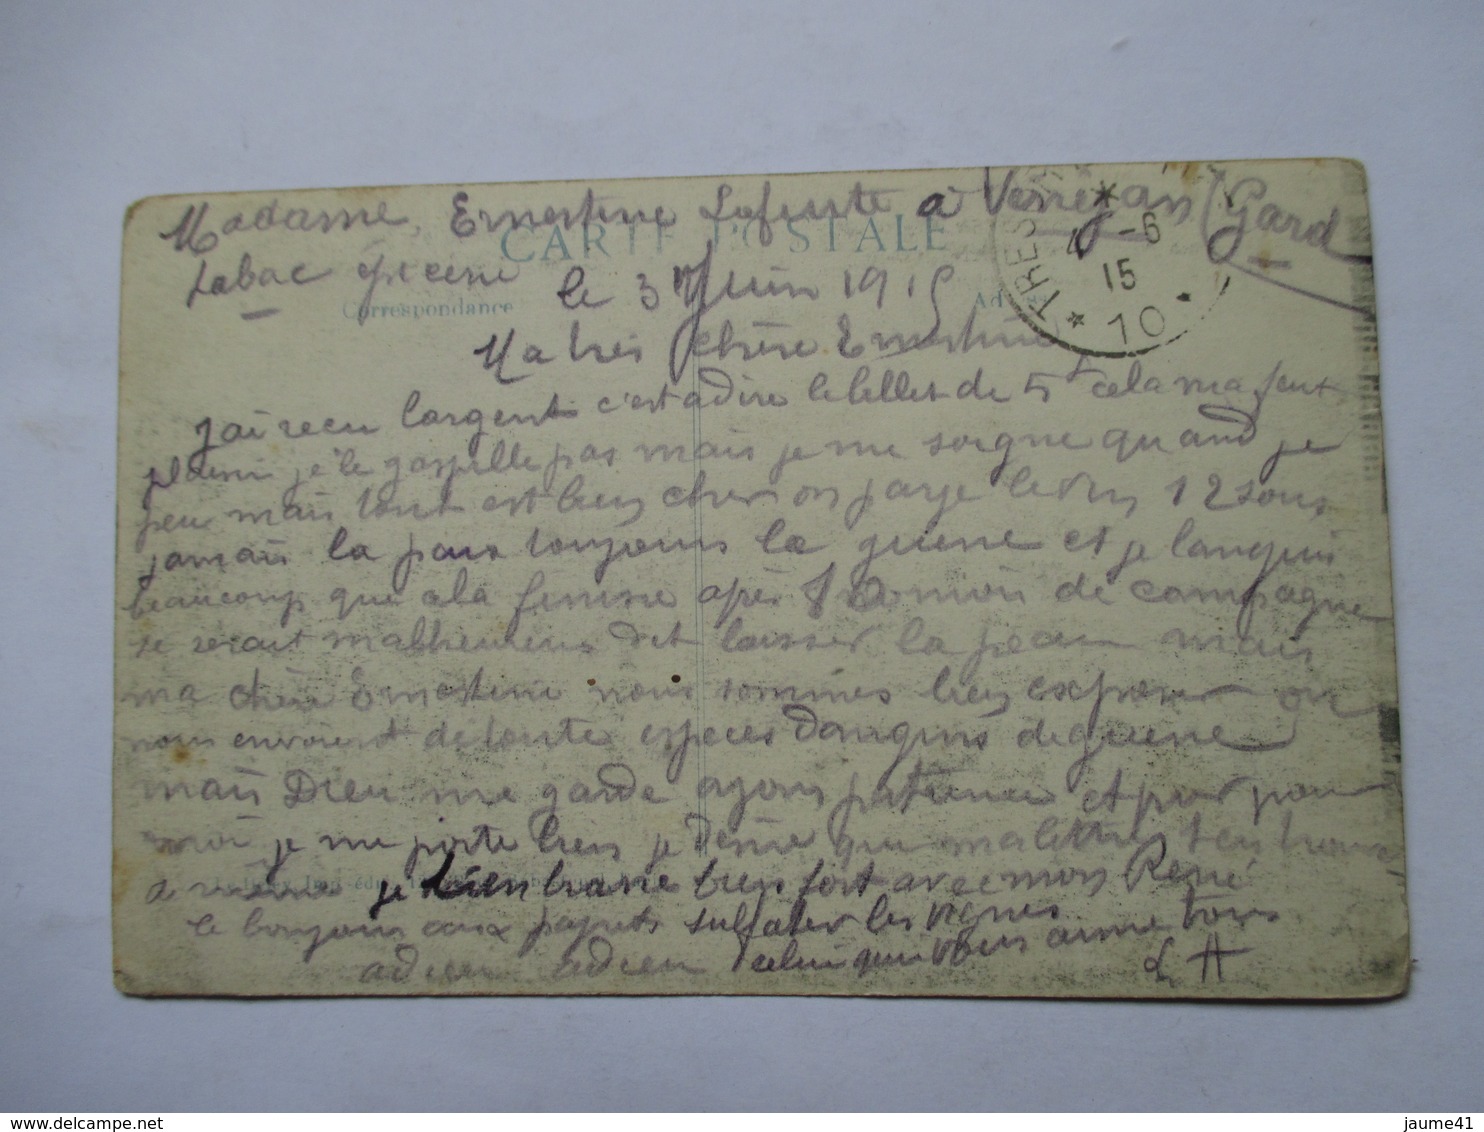 Madame Ernestine à (Gard
CARTE POSTALE
tabac épicerie
Correspondance
le 3 Juin 1915
TRES
* 4 -6
15
* 10 *
Ma très chère Ernestine
j'ai reçu l'argent c'est a dire le billet de 5f cela ma fait
je le gaspille pas mais je me soigne quand je
peu mais tout est bien cher on paye le vin 12 sous
jamais la paix toujours la guerre et je languis
beaucoup que a la femme après 10 moi de campagne
se serait malheureux dit laisser la peau mais
ma chère Ernestine nous sommes bien exposer on
nous envoient de toute espèces d'angins de guerre
mais Dieu me garde ayons patience et pour
moi je me porte bien je désire que ma lettre
je t'embrasse bien fort avec mon René
le bonjour aux papets sulfater les vignes
adieu adieu celui qui vous aime tous
L A
jaume41